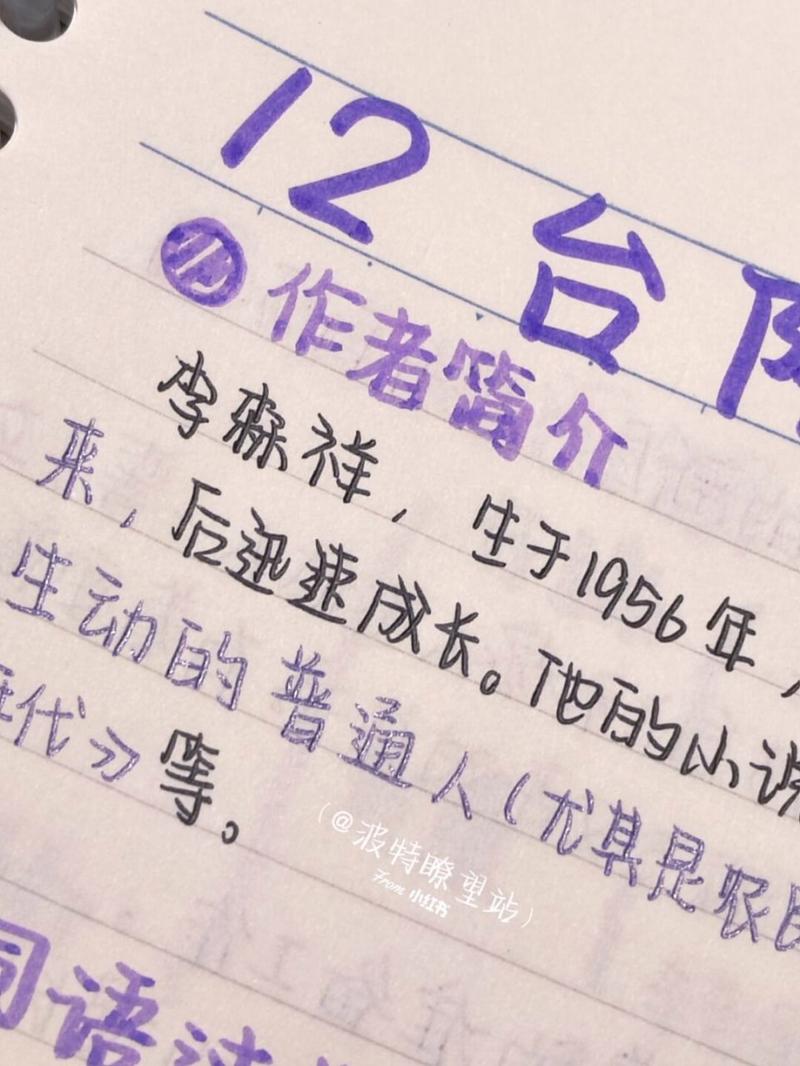 12 台阶
作者简介
李森祥，生于1956年，
来，后迅速成长。他的小说
生动的普通人（尤其是农民
代》等。
（@波特瞭望站）
From 小红书
词语注